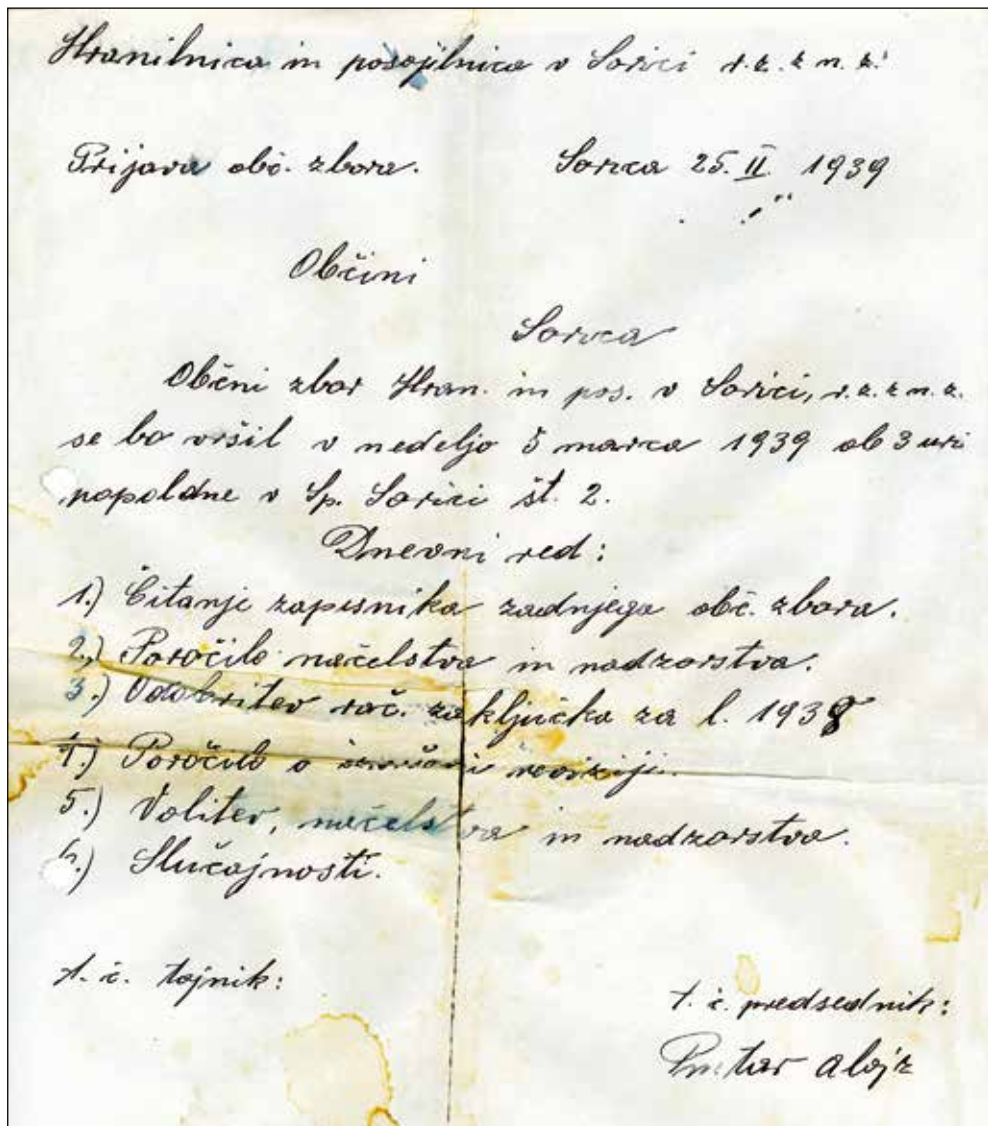 Hranilnica in posojilnica v Sorici r.z.z n.z.
Prijava obč. zbora. Sorica 25. II. 1939
Občini
Sorica
Občni zbor Hran. in pos. v Sorici, r.z.z n.z.
se bo vršil v nedeljo 5 marca 1939 ob 3 uri
popoldne v Sp. Sorici št. 2.
Dnevni red:
1.) Čitanje zapisnika zadnjega obč. zbora.
2.) Poročilo načelstva in nadzorstva.
3.) Odobritev rač. zaključka za l. 1938
4.) Poročilo o izvršeni reviziji.
5.) Volitev, načelstva in nadzorstva.
6.) Slučajnosti.
t. č. tajnik:
t. č. predsednik:
Alojz